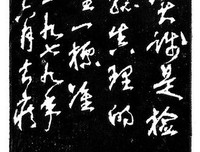 实践是检
验真理的
唯一標准
一九七九年
月